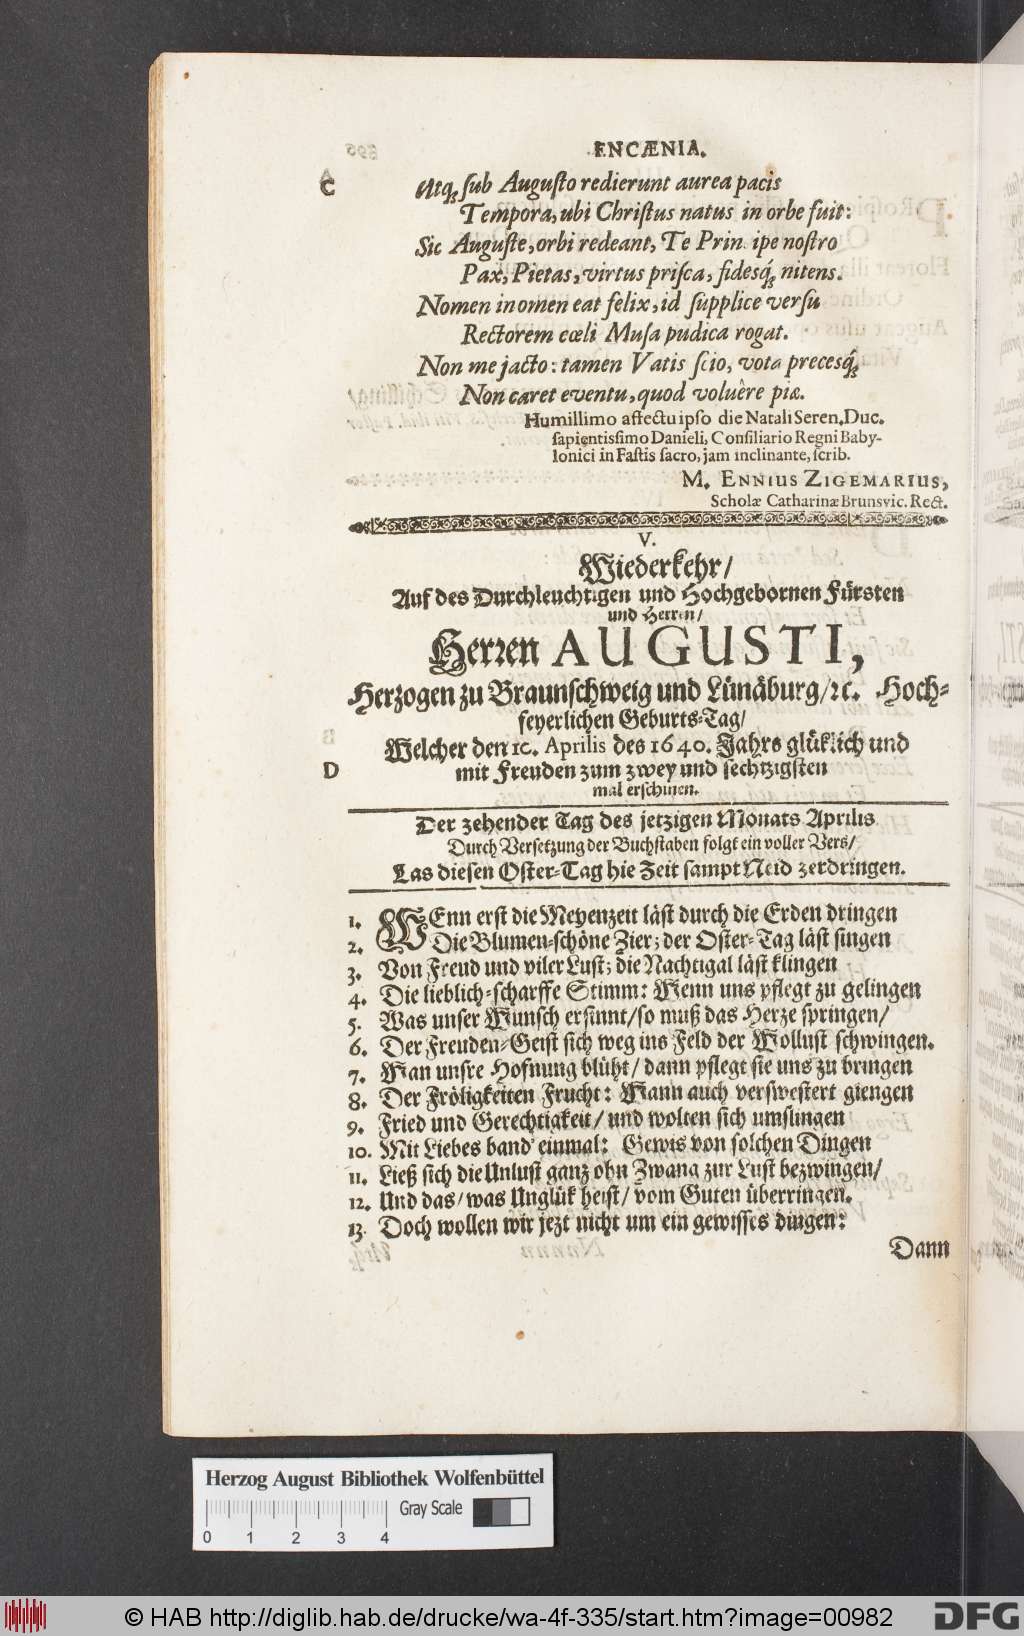 ENCÆNIA.
C
Atq; sub Augusto redierunt aurea pacis
Tempora, ubi Christus natus in orbe fuit:
Sic Auguste, orbi redeant, Te Prin ipe nostro
Pax, Pietas, virtus prisca, fidesq́; nitens.
Nomen in omen eat felix, id supplice versu
Rectorem cœli Musa pudica rogat.
Non me jacto: tamen Vatis scio, vota precesq́;
Non caret eventu, quod voluêre piæ.
Humillimo affectu ipso die Natali Seren. Duc.
sapientissimo Danieli, Consiliario Regni Baby-
lonici in Fastis sacro, jam inclinante, scrib.
M. ENNIUS ZIGEMARIUS,
Scholæ Catharinæ Brunsvic. Rect.
V.
Wiederkehr/
Auf des Durchleuchtigen und Hochgebornen Fürsten
und Herren/
Herren AUGUSTI,
Herzogen zu Braunschweig und Lünäburg/ꝛc. Hoch-
feyerlichen Geburts-Tag/
Welcher den 10. Aprilis des 1640. Jahrs glüklich und
D
mit Freuden zum zwey und sechtzigsten
mal erschinen.
Der zehender Tag des jetzigen Monats Aprilis
Durch Versetzung der Buchstaben folgt ein voller Vers/
Las diesen Oster-Tag hie Zeit sampt Neid zerdringen.
1. WEnn erst die Meyenzeit läst durch die Erden dringen
2. Die Blumen-schöne Zier; der Oster-Tag läst singen
3. Von Freud und viler Lust; die Nachtigal läst klingen
4. Die lieblich-scharffe Stimm: Wenn uns pflegt zu gelingen
5. Was unser Wunsch ersinnt/so muß das Herze springen/
6. Der Freuden-Geist sich weg ins Feld der Wollust schwingen.
7. Wan unsre Hofnung blüht/dann pflegt sie uns zu bringen
8. Der Fröligkeiten Frucht: Wann auch verswestert giengen
9. Fried und Gerechtigkeit/und wolten sich umslingen
10. Mit Liebes band einmal: Gewis von solchen Dingen
11. Ließ sich die Unlust ganz ohn Zwang zur Lust bezwingen/
12. Und das/was Unglük heist/vom Guten überringen.
13. Doch wollen wir jezt nicht um ein gewisses dingen:
Dann
Herzog August Bibliothek Wolfenbüttel
Gray Scale
0 1 2 3 4
© HAB http://diglib.hab.de/drucke/wa-4f-335/start.htm?image=00982
DFG